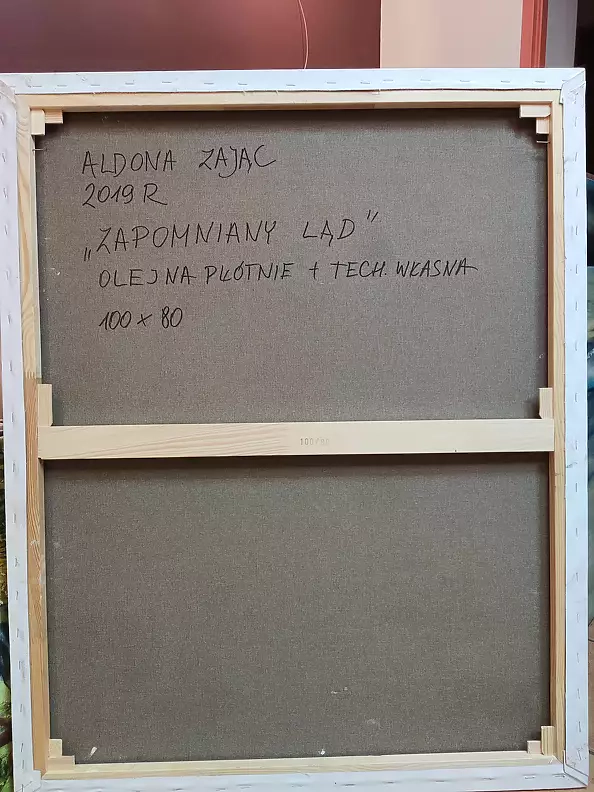 ALDONA ZAJĄC
2019 R
„ZAPOMNIANY LĄD"
OLEJ NA PŁÓTNIE + TECH. WŁASNA
100 x 80
100/80